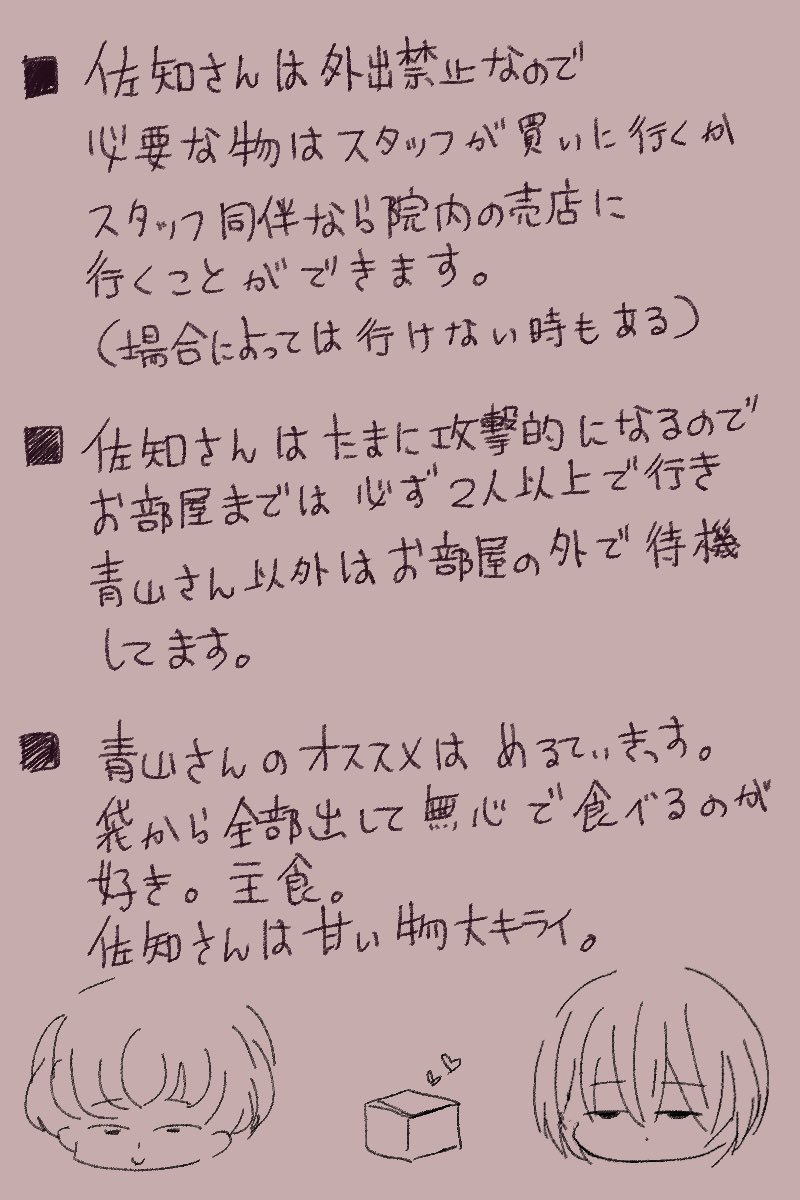 ■ 佐知さんは外出禁止なので
必要な物はスタッフが買いに行くか
スタッフ同伴なら院内の売店に
行くことができます。
(場合によっては行けない時もある)
■ 佐知さんはたまに攻撃的になるので
お部屋までは必ず2人以上で行き
青山さん以外はお部屋の外で待機
してます。
■ 青山さんのオススメはめるてぃきっす。
袋から全部出して無心で食べるのが
好き。主食。
佐知さんは甘い物大キライ。